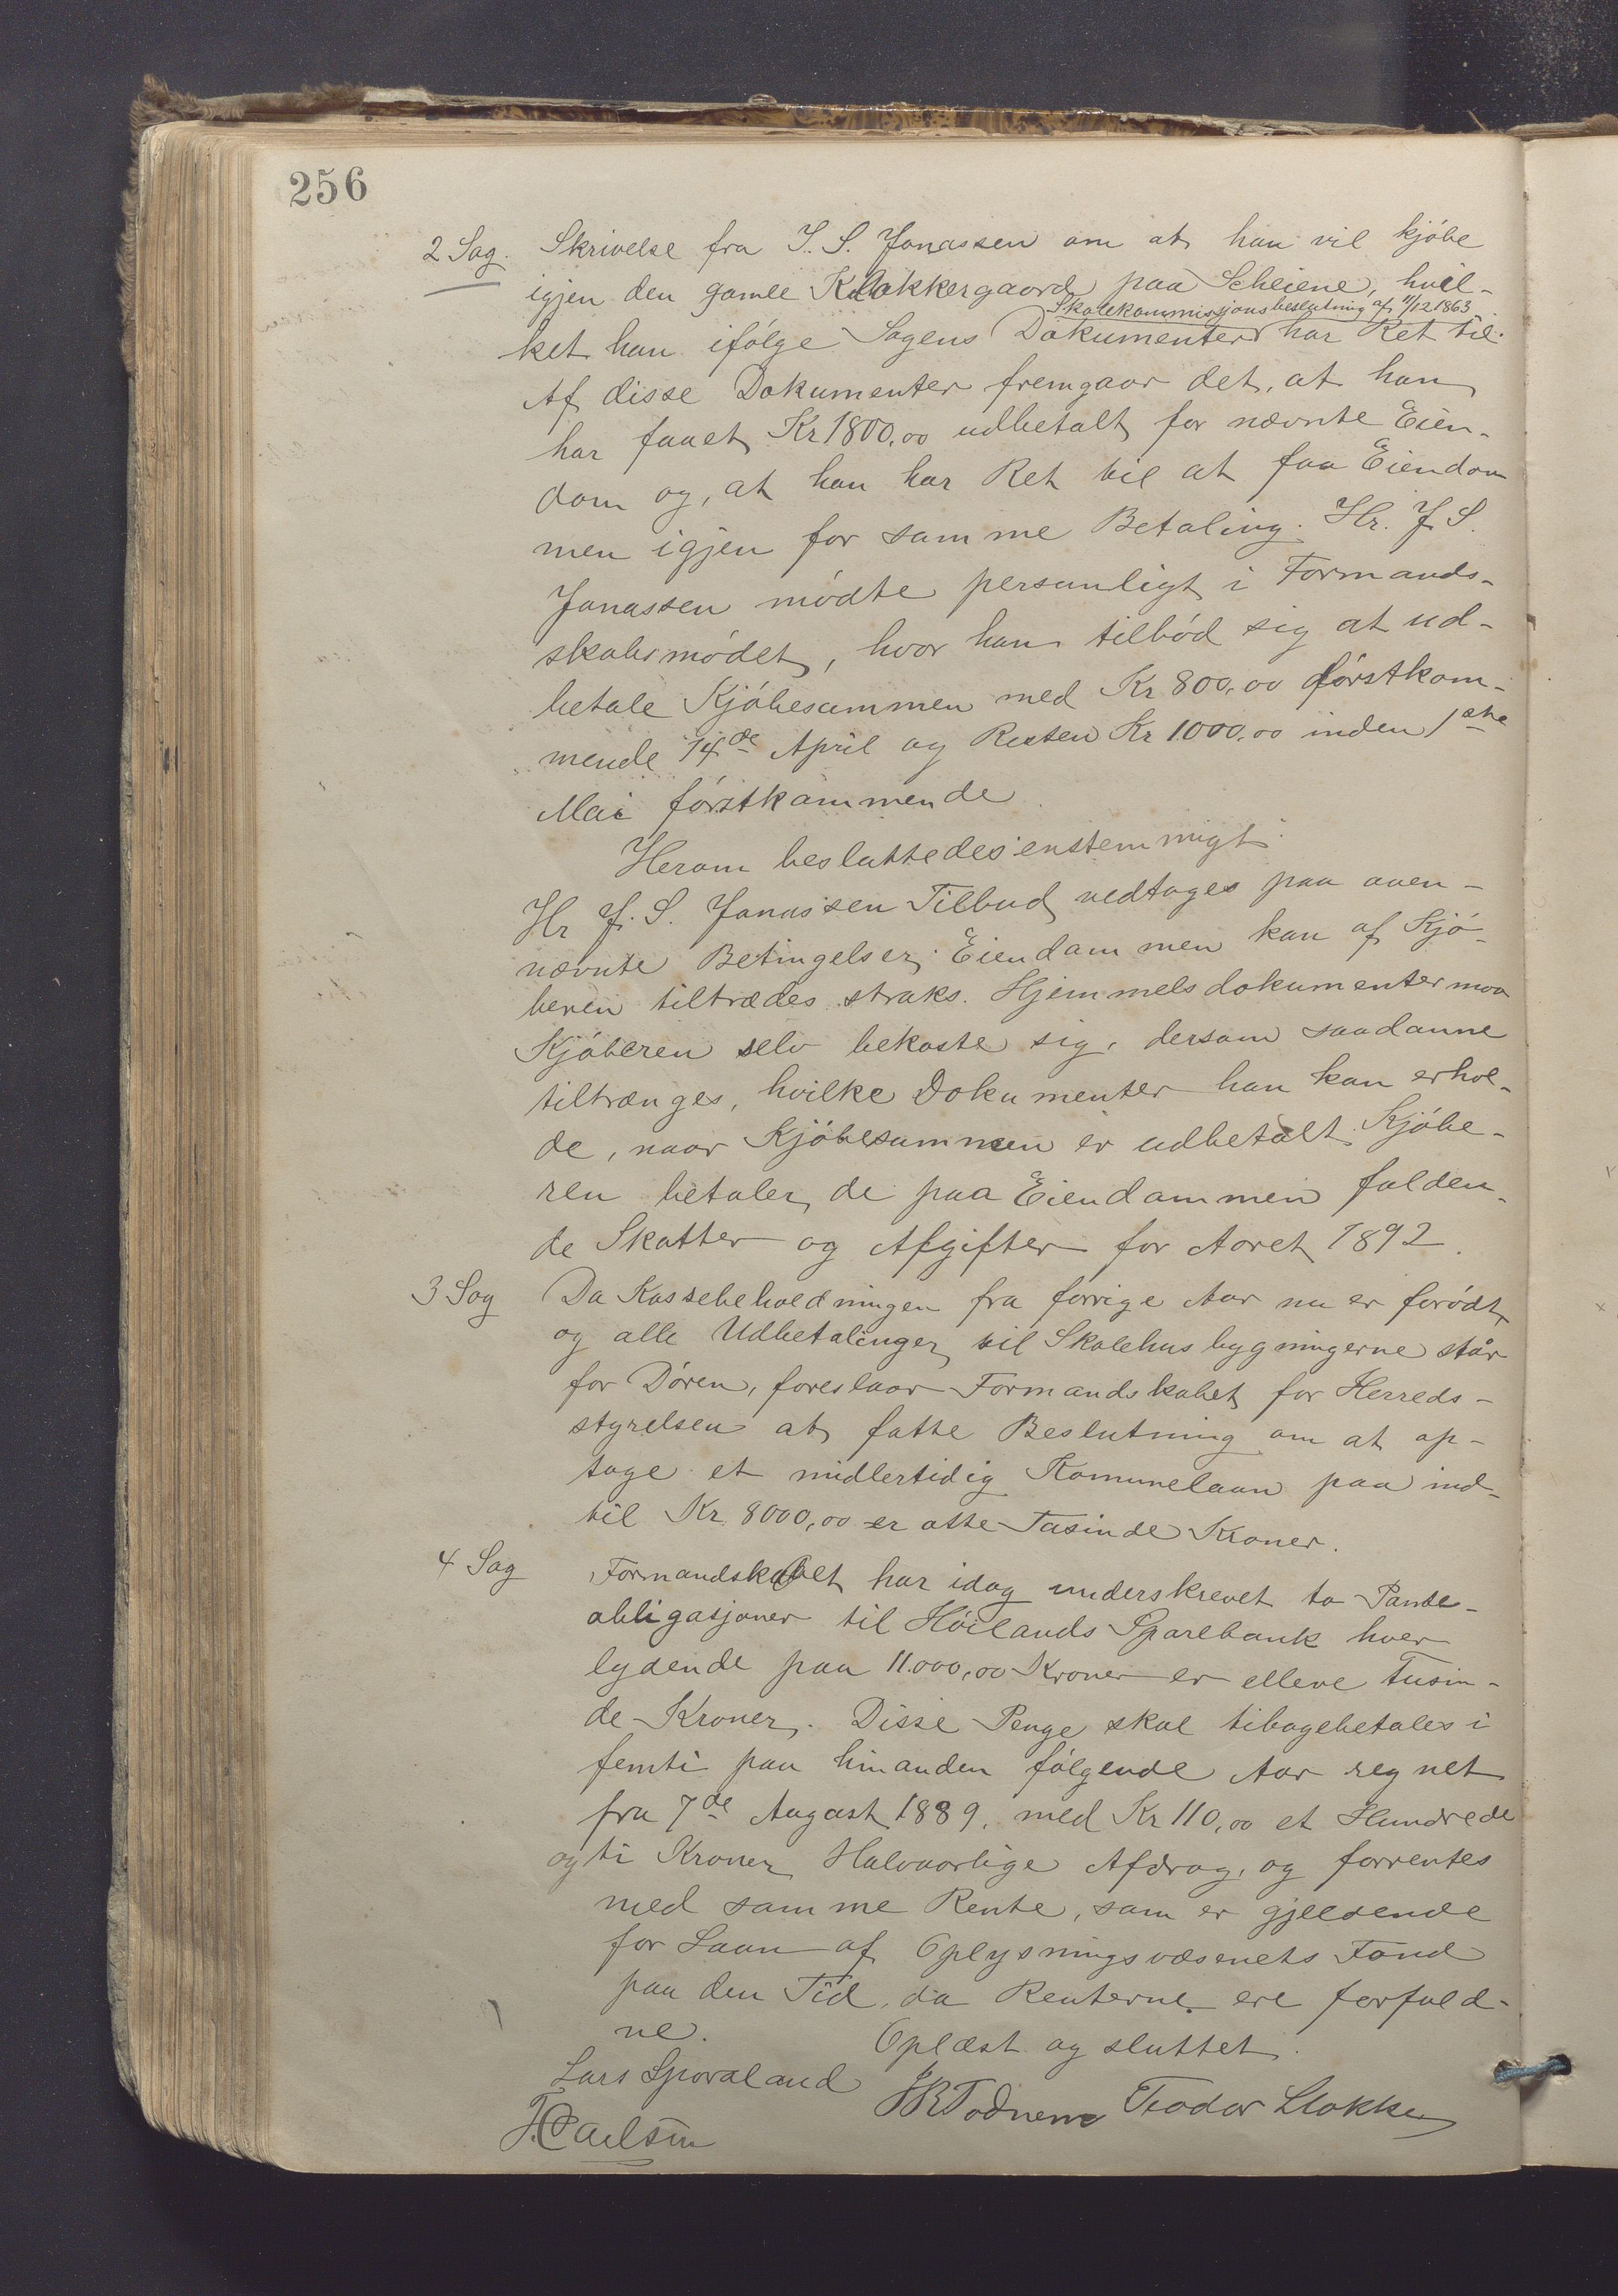 256
2 Sag. Skrivelse fra J. S. Jonassen om at han vil kjøbe
igjen den gamle Klokkergaard paa Scheiene, hvil-
Skolekommissjonsbeslutning af 11/12 1863
ket han ifølge Sagens Dokumenter har Ret til.
Af disse Dokumenter fremgaar det, at han
har faaet Kr 1800,00 udbetalt for nævnte Eien-
dom og, at han har Ret til at faa Eiendom
men igjen for samme Betaling. Hr. J. S.
Jonassen mødte personligt i Formands-
skabsmødet, hvor han tilbød sig at ud-
betale Kjøbesummen med Kr 800,00 førstkom-
mende 14de April og Resten Kr 1000,00 inden 1ste
Mai førstkommende
Herom besluttedes enstemmigt:
Hr J. S. Jonassen Tilbud vedtages paa oven-
nævnte Betingelser. Eiendommen kan af Kjø-
beren tiltrædes straks. Hjemmelsdokumenter maa
Kjøberen selv bekoste sig, dersom saadanne
tiltrænges, hvilke Dokumenter han kan erhol-
de, naar Kjøbesummen er udbetalt. Kjøbe-
ren betaler de paa Eiendommen falden-
de Skatter og Afgifter for Aaret 1892.
3 Sag Da Kassebeholdningen fra forrige Aar nu er forødt
og alle Udbetalinger til Skolehusbygningerne står
for Døren, foreslaar Formandskabet for Herreds-
styrelsen at fatte Beslutning om at op-
tage et midlertidig Komunelaan paa ind-
til Kr. 8000,00 er otte Tusinde Kroner.
4 Sag Formandskabet har idag underskrevet to Pante-
obligasjoner til Høilands Sparebank hver
lydende paa 11.000,00 Kroner er elleve Tusin-
de Kroner. Disse Penge skal tibagebetales i
femti paa hinanden følgende Aar regnet
fra 7de August 1889, med Kr 110,00 et Hundrede
og ti Kroner Halvaarlige Afdrag, og forrentes
med samme Rente, som er gjeldende
for Laan af Oplysningsvæsenets Fond
paa den Tid, da Renterne ere forfald-
ne. Oplæst og sluttet.
Lars Sporaland JB Todnem Teodor Stokke
T. Carlsen